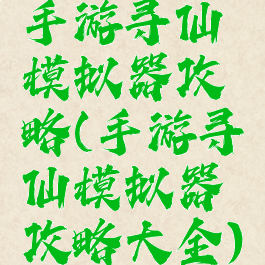 手游寻仙
模拟器攻
略(手游寻
仙模拟器
攻略大全)